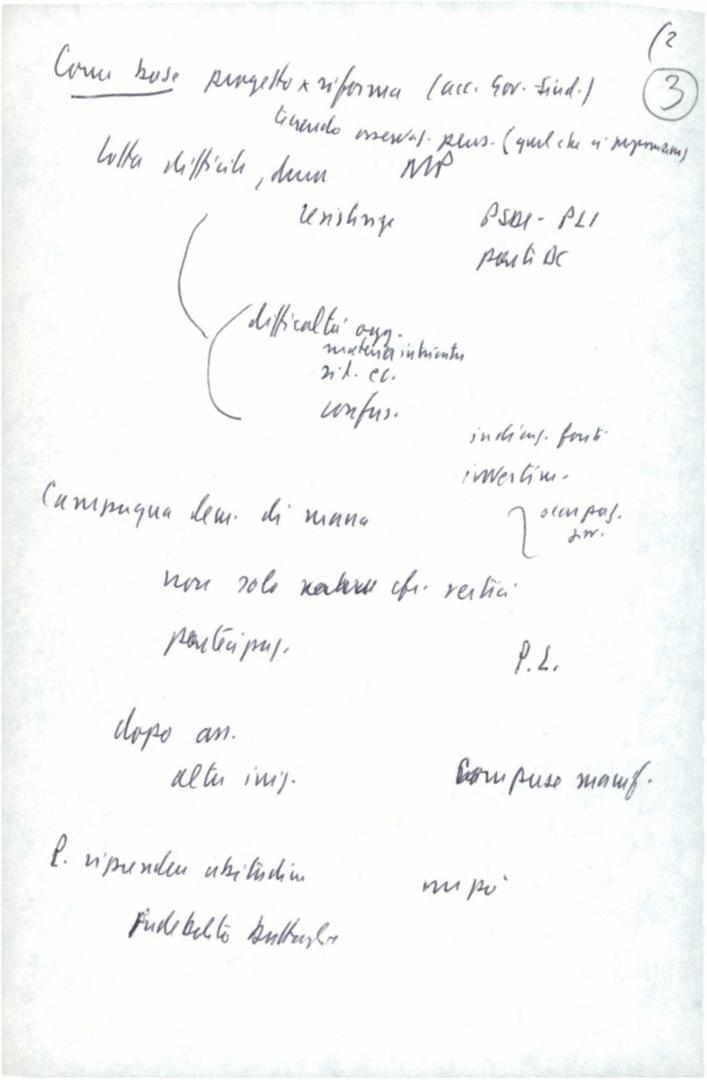 (2
3
Come base progetto x riforma (acc. Gov. Sind.)
tenendo osservaz. pens. (quel che ci
lotta difficile, dura MP
resistenze PSDI - PLI
parti DC
difficoltà ogg.
materia intricata
sit. ec.
confus.
indicaz. fonti
investim.
Campagna dem. di massa
occupaz.
non solo vertici
partecipaz.
P.L.
dopo ass.
altre iniz.
manif.
P. riprendere abitudini
un pò
Indebolito battaglie